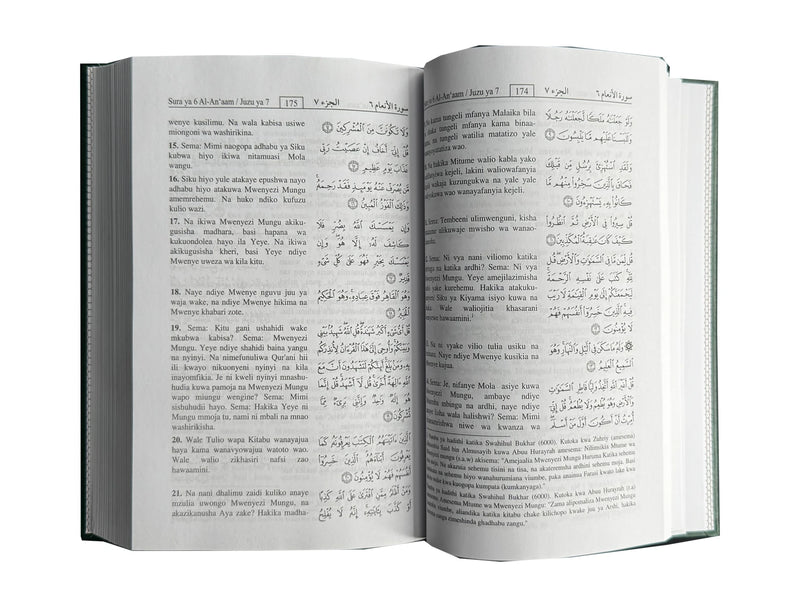 Sura ya 6 Al-An‘aam / Juzu ya 7 175 الجزء ٧ سورة الأنعام ٦
wenye kusilimu. Na wala kabisa usiwe
miongoni wa washirikina.
15. Sema: Mimi naogopa adhabu ya Siku
kubwa hiyo ikiwa nitamuasi Mola
wangu.
16. Siku hiyo yule atakaye epushwa nayo
adhabu hiyo atakuwa Mwenyezi Mungu
amemrehemu. Na huko ndiko kufuzu
kulio wazi.
17. Na ikiwa Mwenyezi Mungu akiku-
gusisha madhara, basi hapana wa
kukuondolea hayo ila Yeye. Na ikiwa
akikugusisha kheri, basi Yeye ndiye
Mwenye uweza wa kila kitu.
18. Naye ndiye Mwenye nguvu juu ya
waja wake, na ndiye Mwenye hikima na
Mwenye khabari zote.
19. Sema: Kitu gani ushahidi wake
mkubwa kabisa? Sema: Mwenyezi
Mungu. Yeye ndiye shahidi baina yangu
na nyinyi. Na nimefunuliwa Qur'ani hii
ili kwayo nikuonyeni nyinyi na kila
inayomfikia. Je ni kweli nyinyi mnashuhu-
hudia kuwa pamoja na Mwenyezi Mungu
wapo miungu wengine? Sema: Mimi
sishuhudii hayo. Sema: Hakika Yeye ni
Mungu mmoja tu, nami ni mbali na mnao
washirikisha.
20. Wale Tulio wapa Kitabu wanayajua
haya kama wanavyowajua watoto wao.
Wale walio zikhasiri nafsi zao
hawaamini.
21. Na nani dhalimu zaidi kuliko anaye
mzulia uwongo Mwenyezi Mungu, na
akazikanusha Aya zake? Hakika madha-
وَلَا تَكُونَنَّ مِنَ الْمُشْرِكِينَ
قُلْ إِنِّي أَخَافُ إِنْ عَصَيْتُ رَبِّي
عَذَابَ يَوْمٍ عَظِيمٍ
مَّن يُصْرَفْ عَنْهُ يَوْمَئِذٍ فَقَدْ رَحِمَهُ
وَذَٰلِكَ الْفَوْزُ الْمُبِينُ
وَإِن يَمْسَسْكَ اللَّهُ بِضُرٍّ فَلَا
كَاشِفَ لَهُ إِلَّا هُوَ وَإِن
يَمْسَسْكَ بِخَيْرٍ فَهُوَ عَلَىٰ كُلِّ شَيْءٍ
قَدِيرٌ
وَهُوَ الْقَاهِرُ فَوْقَ عِبَادِهِ وَهُوَ الْحَكِيمُ
الْخَبِيرُ
قُلْ أَيُّ شَيْءٍ أَكْبَرُ شَهَادَةً قُلِ اللَّهُ شَهِيدٌ بَيْنِي
وَبَيْنَكُمْ وَأُوحِيَ إِلَيَّ هَٰذَا الْقُرْآنُ لِأُنذِرَكُم
بِهِ وَمَن بَلَغَ أَئِنَّكُمْ لَتَشْهَدُونَ أَنَّ مَعَ
اللَّهِ آلِهَةً أُخْرَىٰ قُل لَّا أَشْهَدُ قُلْ إِنَّمَا
هُوَ إِلَٰهٌ وَاحِدٌ وَإِنَّنِي بَرِيءٌ مِّمَّا
تُشْرِكُونَ
الَّذِينَ آتَيْنَاهُمُ الْكِتَابَ يَعْرِفُونَهُ كَمَا
يَعْرِفُونَ أَبْنَاءَهُمُ الَّذِينَ خَسِرُوا
أَنفُسَهُمْ فَهُمْ لَا يُؤْمِنُونَ
وَمَنْ أَظْلَمُ مِمَّنِ افْتَرَىٰ عَلَى اللَّهِ كَذِبًا
أَوْ كَذَّبَ بِآيَاتِهِ إِنَّهُ لَا يُفْلِحُ
ya 6 Al-An‘aam / Juzu ya 7 174 الجزء ٧ سورة الأنعام ٦
kama tungeli mfanya Malaika bila
tungeli mfanya kama binaa-
na tungeli watilia matatizo yale
wao.
hakika Mitume walio kabla yako
kejeli, lakini waliowafanyia
wakaja kuzungukwa na yale yale
wao wanayafanyia kejeli.
Sema: Tembeeni ulimwenguni, kisha
ulikuwaje mwisho wa wanao-
Sema: Ni vya nani viliomo katika
na katika ardhi? Sema: Ni vya
Mungu. Yeye amejilazimisha
yake kurehemu. Hakika atakuku-
Siku ya Kiyama isiyo kuwa na
Wale waliojitia khasarani
hawaamini.
Na ni vyake vilio tulia usiku na
Naye ndiye Mwenye kusikia na
kujua.
Sema: Je, nifanye Mola asiye kuwa
Mungu, ambaye ndiye
mbingu na ardhi, naye ndiye
lisha wala halishwi? Sema: Mimi
niwe wa kwanza wa
وَلَوْ جَعَلْنَاهُ مَلَكًا لَّجَعَلْنَاهُ رَجُلًا
وَلَلَبَسْنَا عَلَيْهِم مَّا يَلْبِسُونَ
وَلَقَدِ اسْتُهْزِئَ بِرُسُلٍ مِّن قَبْلِكَ
فَحَاقَ بِالَّذِينَ سَخِرُوا مِنْهُم مَّا
كَانُوا بِهِ يَسْتَهْزِئُونَ
قُلْ سِيرُوا فِي الْأَرْضِ ثُمَّ انظُرُوا
كَيْفَ كَانَ عَاقِبَةُ الْمُكَذِّبِينَ
قُل لِّمَن مَّا فِي السَّمَاوَاتِ وَالْأَرْضِ قُل
لِّلَّهِ كَتَبَ عَلَىٰ نَفْسِهِ الرَّحْمَةَ
لَيَجْمَعَنَّكُمْ إِلَىٰ يَوْمِ الْقِيَامَةِ لَا رَيْبَ
فِيهِ الَّذِينَ خَسِرُوا أَنفُسَهُمْ فَهُمْ
لَا يُؤْمِنُونَ
وَلَهُ مَا سَكَنَ فِي اللَّيْلِ وَالنَّهَارِ وَهُوَ
السَّمِيعُ الْعَلِيمُ
قُلْ أَغَيْرَ اللَّهِ أَتَّخِذُ وَلِيًّا فَاطِرِ السَّمَاوَاتِ
وَالْأَرْضِ وَهُوَ يُطْعِمُ وَلَا يُطْعَمُ قُلْ إِنِّي
أُمِرْتُ أَنْ أَكُونَ أَوَّلَ مَنْ أَسْلَمَ
ya hadithi katika Swahihul Bukhar (6000). Kutoka kwa Zuhriy (amesema)
Said bin Almusayib kuwa Abuu Hurayrah amesema: Nilimsikia Mtume wa
Mungu (s.a.w) akisema: "Amejaalia Mwenyezi Mungu Huruma Katika sehemu
Na akazuia sehemu tisini na tisa, na akateremsha ardhini sehemu moja. Basi
na sehemu hiyo wanahurumiana viumbe, paka unamua Farasi kwato lake kwa
kwa kuogopa kumpata (kumkanyaga)."
ya hadithi katika Swahihul Bukhar (6000). Kutoka kwa Abuu Hurayrah (r.a)
Amesema Mtume wa Mwenyezi Mungu: "Zama alipomaliza Mwenyezi Mungu
viumbe, aliandika katika kitabu chake kilichopo kwake juu ya Arshi, hakika
yangu zimeshinda ghadhabu zangu."